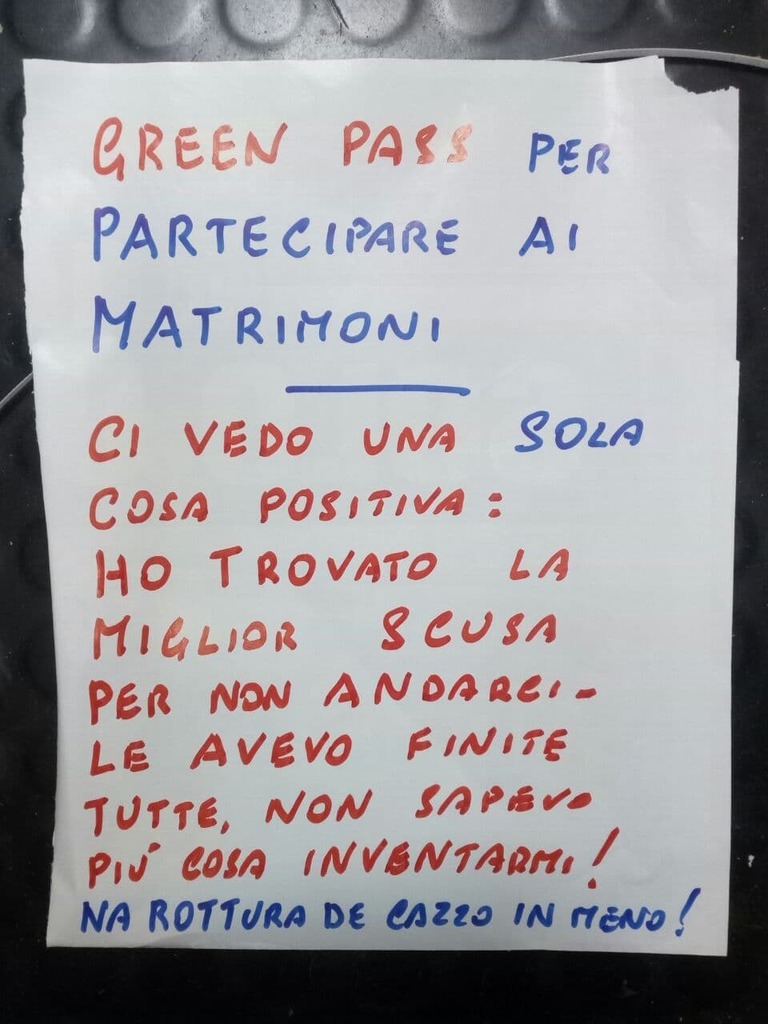 GREEN PASS PER
PARTECIPARE AI
MATRIMONI
CI VEDO UNA SOLA
COSA POSITIVA:
HO TROVATO LA
MIGLIOR SCUSA
PER NON ANDARCI-
LE AVEVO FINITE
TUTTE, NON SAPEVO
PIÚ COSA INVENTARMI!
NA ROTTURA DE CAZZO IN MENO!